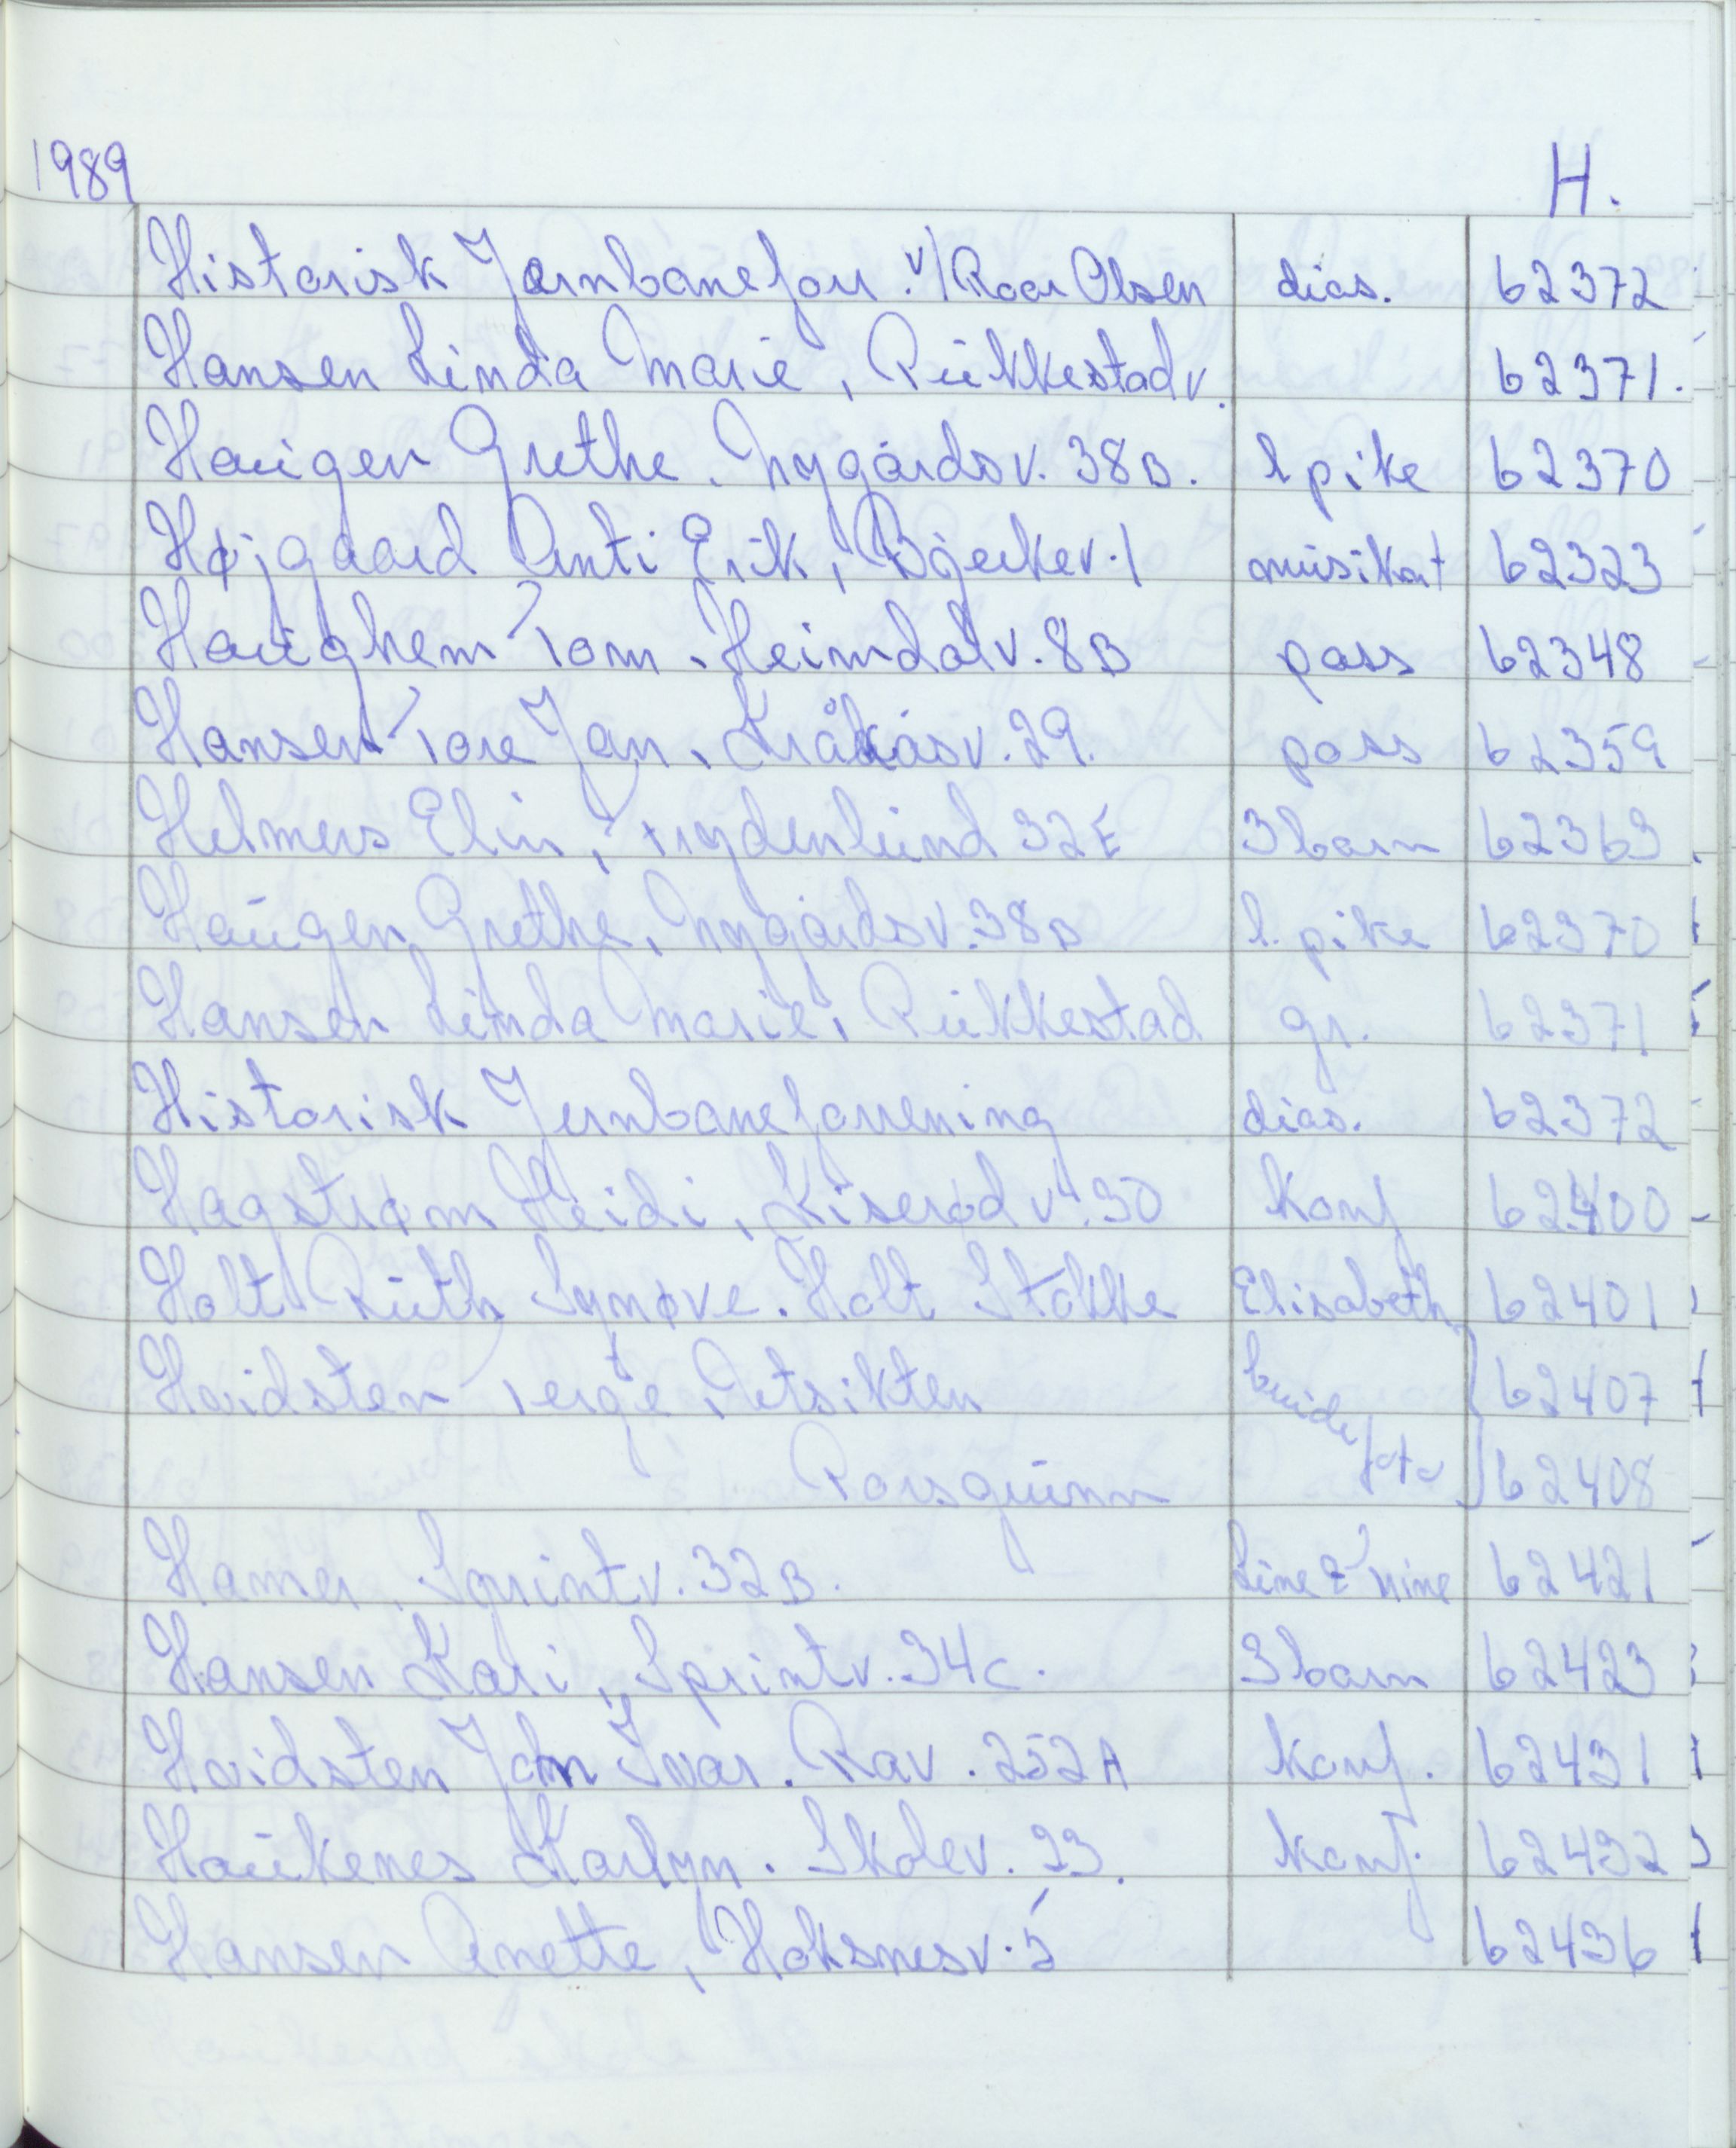 1989 H.
Historisk Jernbanefor. v/ Roar Olsen dias. 62372
Hansen Linda Marie, Rukkestadv. 62371.
Haugen Grethe. Nygårdsv. 38B. l pike 62370
Højgaard Anti Erik, Bjerkev. 1 musikat 62323
Haughem Tom. Heimdalv. 8B pass 62348
Hansen Tore Jan. Kråkåsv. 29. pass 62359
Helmers Elin, Frydenlund 32E 3 barn 62363
Haugen Grethe, Nygårdsv. 38B l. pike 62370
Hansen Linda Marie, Rukkestad gr. 62371
Historisk Jernbaneforrening dias. 62372
Hagstrøm Heidi, Kiserødv. 30 Konf 62400
Holt Ruth Synøve. Holt Stokke Elisabeth 62401
Hvidsten Terje, Utsikten brude 62407
Porsgrunn foto 62408
Hamer, Sprintv. 32B. Line & Trine 62421
Hansen Kari, Sprintv. 34c. 3 barn 62423
Hvidsten Jan Ivar. Rav. 252A Konf. 62431
Haukenes Karlyn. Skolev. 23. Konf. 62432
Hansen Anette, Hoksnesv. 5 62436